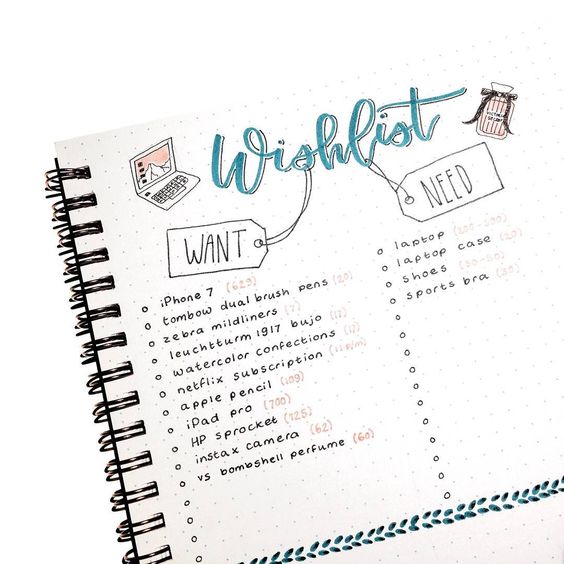 Wishlist
WANT
iPhone 7 (629)
tombow dual brush pens (20)
zebra mildliners (7)
leuchtturm 1917 bujo (17)
watercolor confections (17)
netflix subscription (11 p/m)
apple pencil (109)
iPad pro (700)
HP sprocket (125)
instax camera (62)
vs bombshell perfume (60)
NEED
laptop
laptop case (20)
shoes (30-50)
sports bra (30)